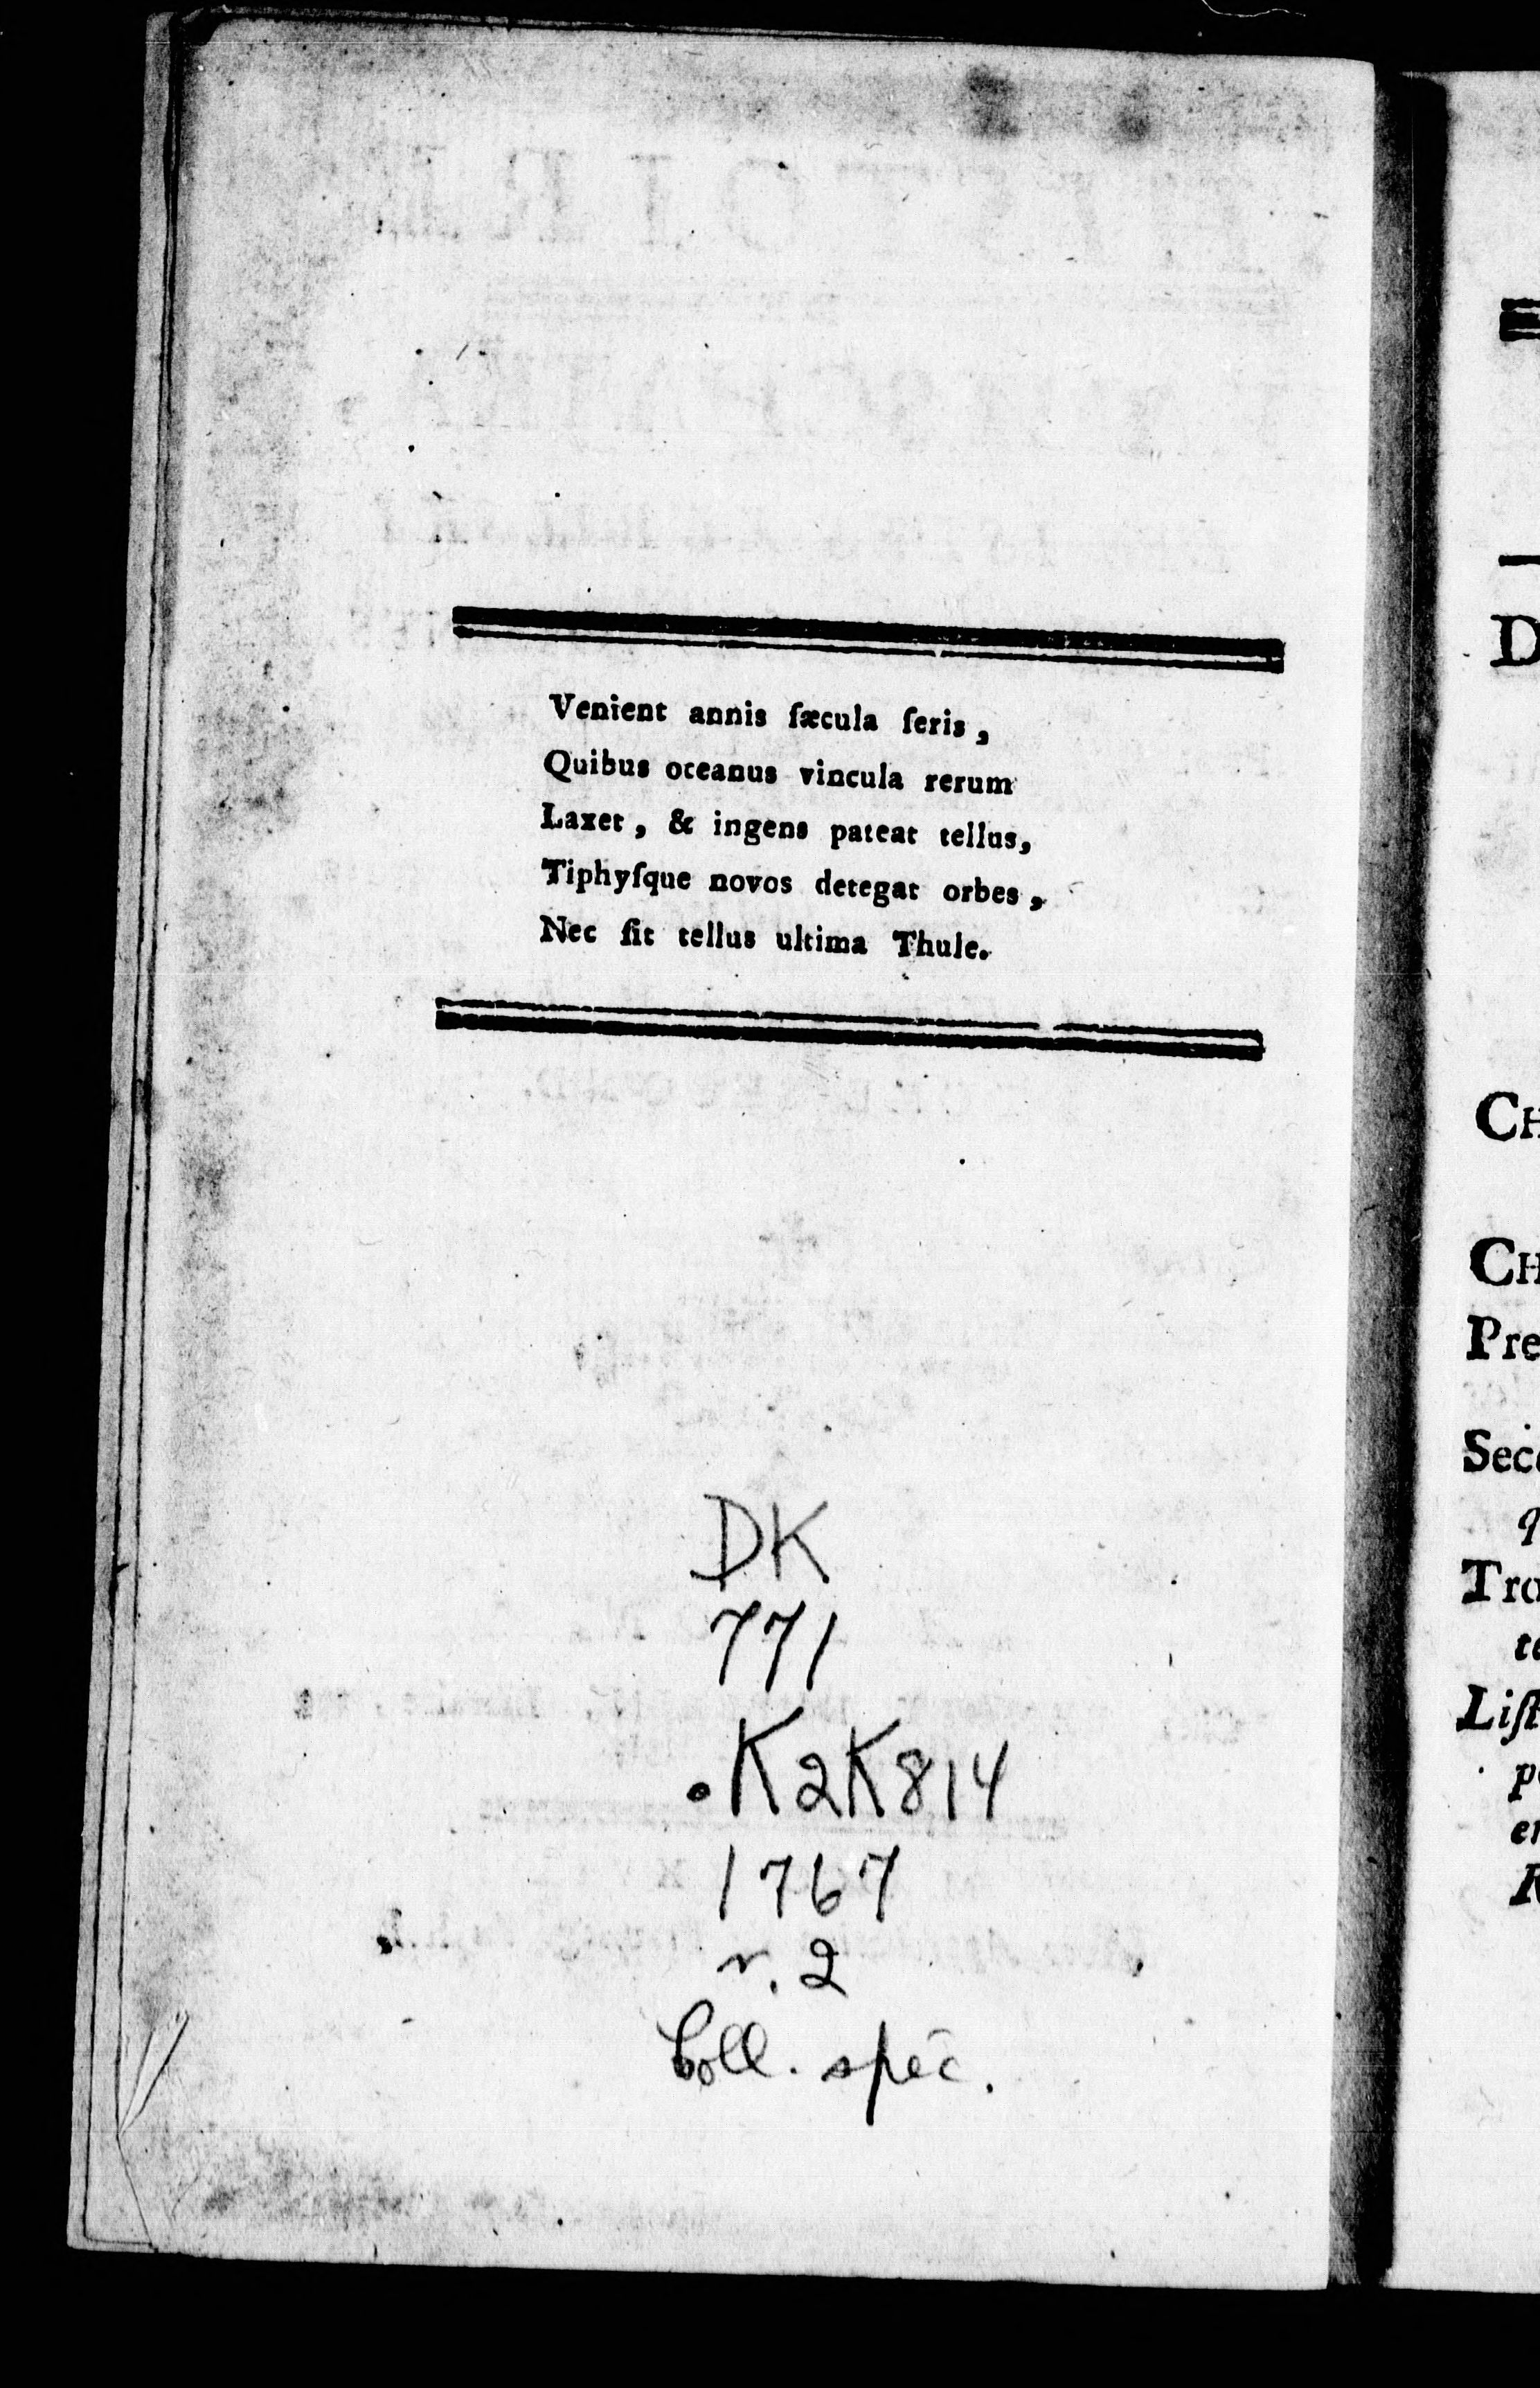 Venient annis ſæcula ſeris,
Quibus oceanus vincula rerum
Laxet, & ingens pateat tellus,
Tiphyſque novos detegat orbes,
Nec ſit tellus ultima Thule.
DK
771
.K2K814
1767
v. 2
Coll. spéc.
D
CH
CH
Pre
Sec
q
Tra
te
Liſt
p
en